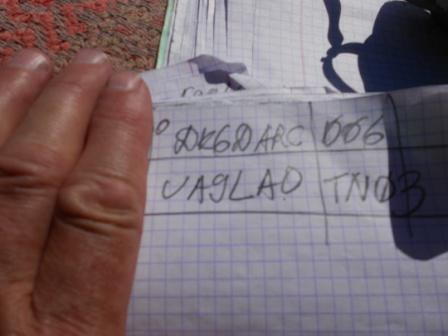 DK6DARC 006
UA9LAO TN03